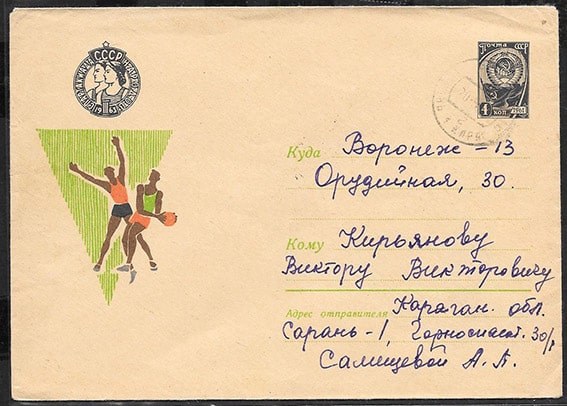 СССР
1963
ПОЧТА СССР
4
КОП.
Куда Воронеж - 13
Орудийная, 30.
Кому Кирьянову
Виктору Викторовичу
Адрес отправителя Караган. обл.
Сарань-1, Горноспасат. 30/
Салищевой А. П.